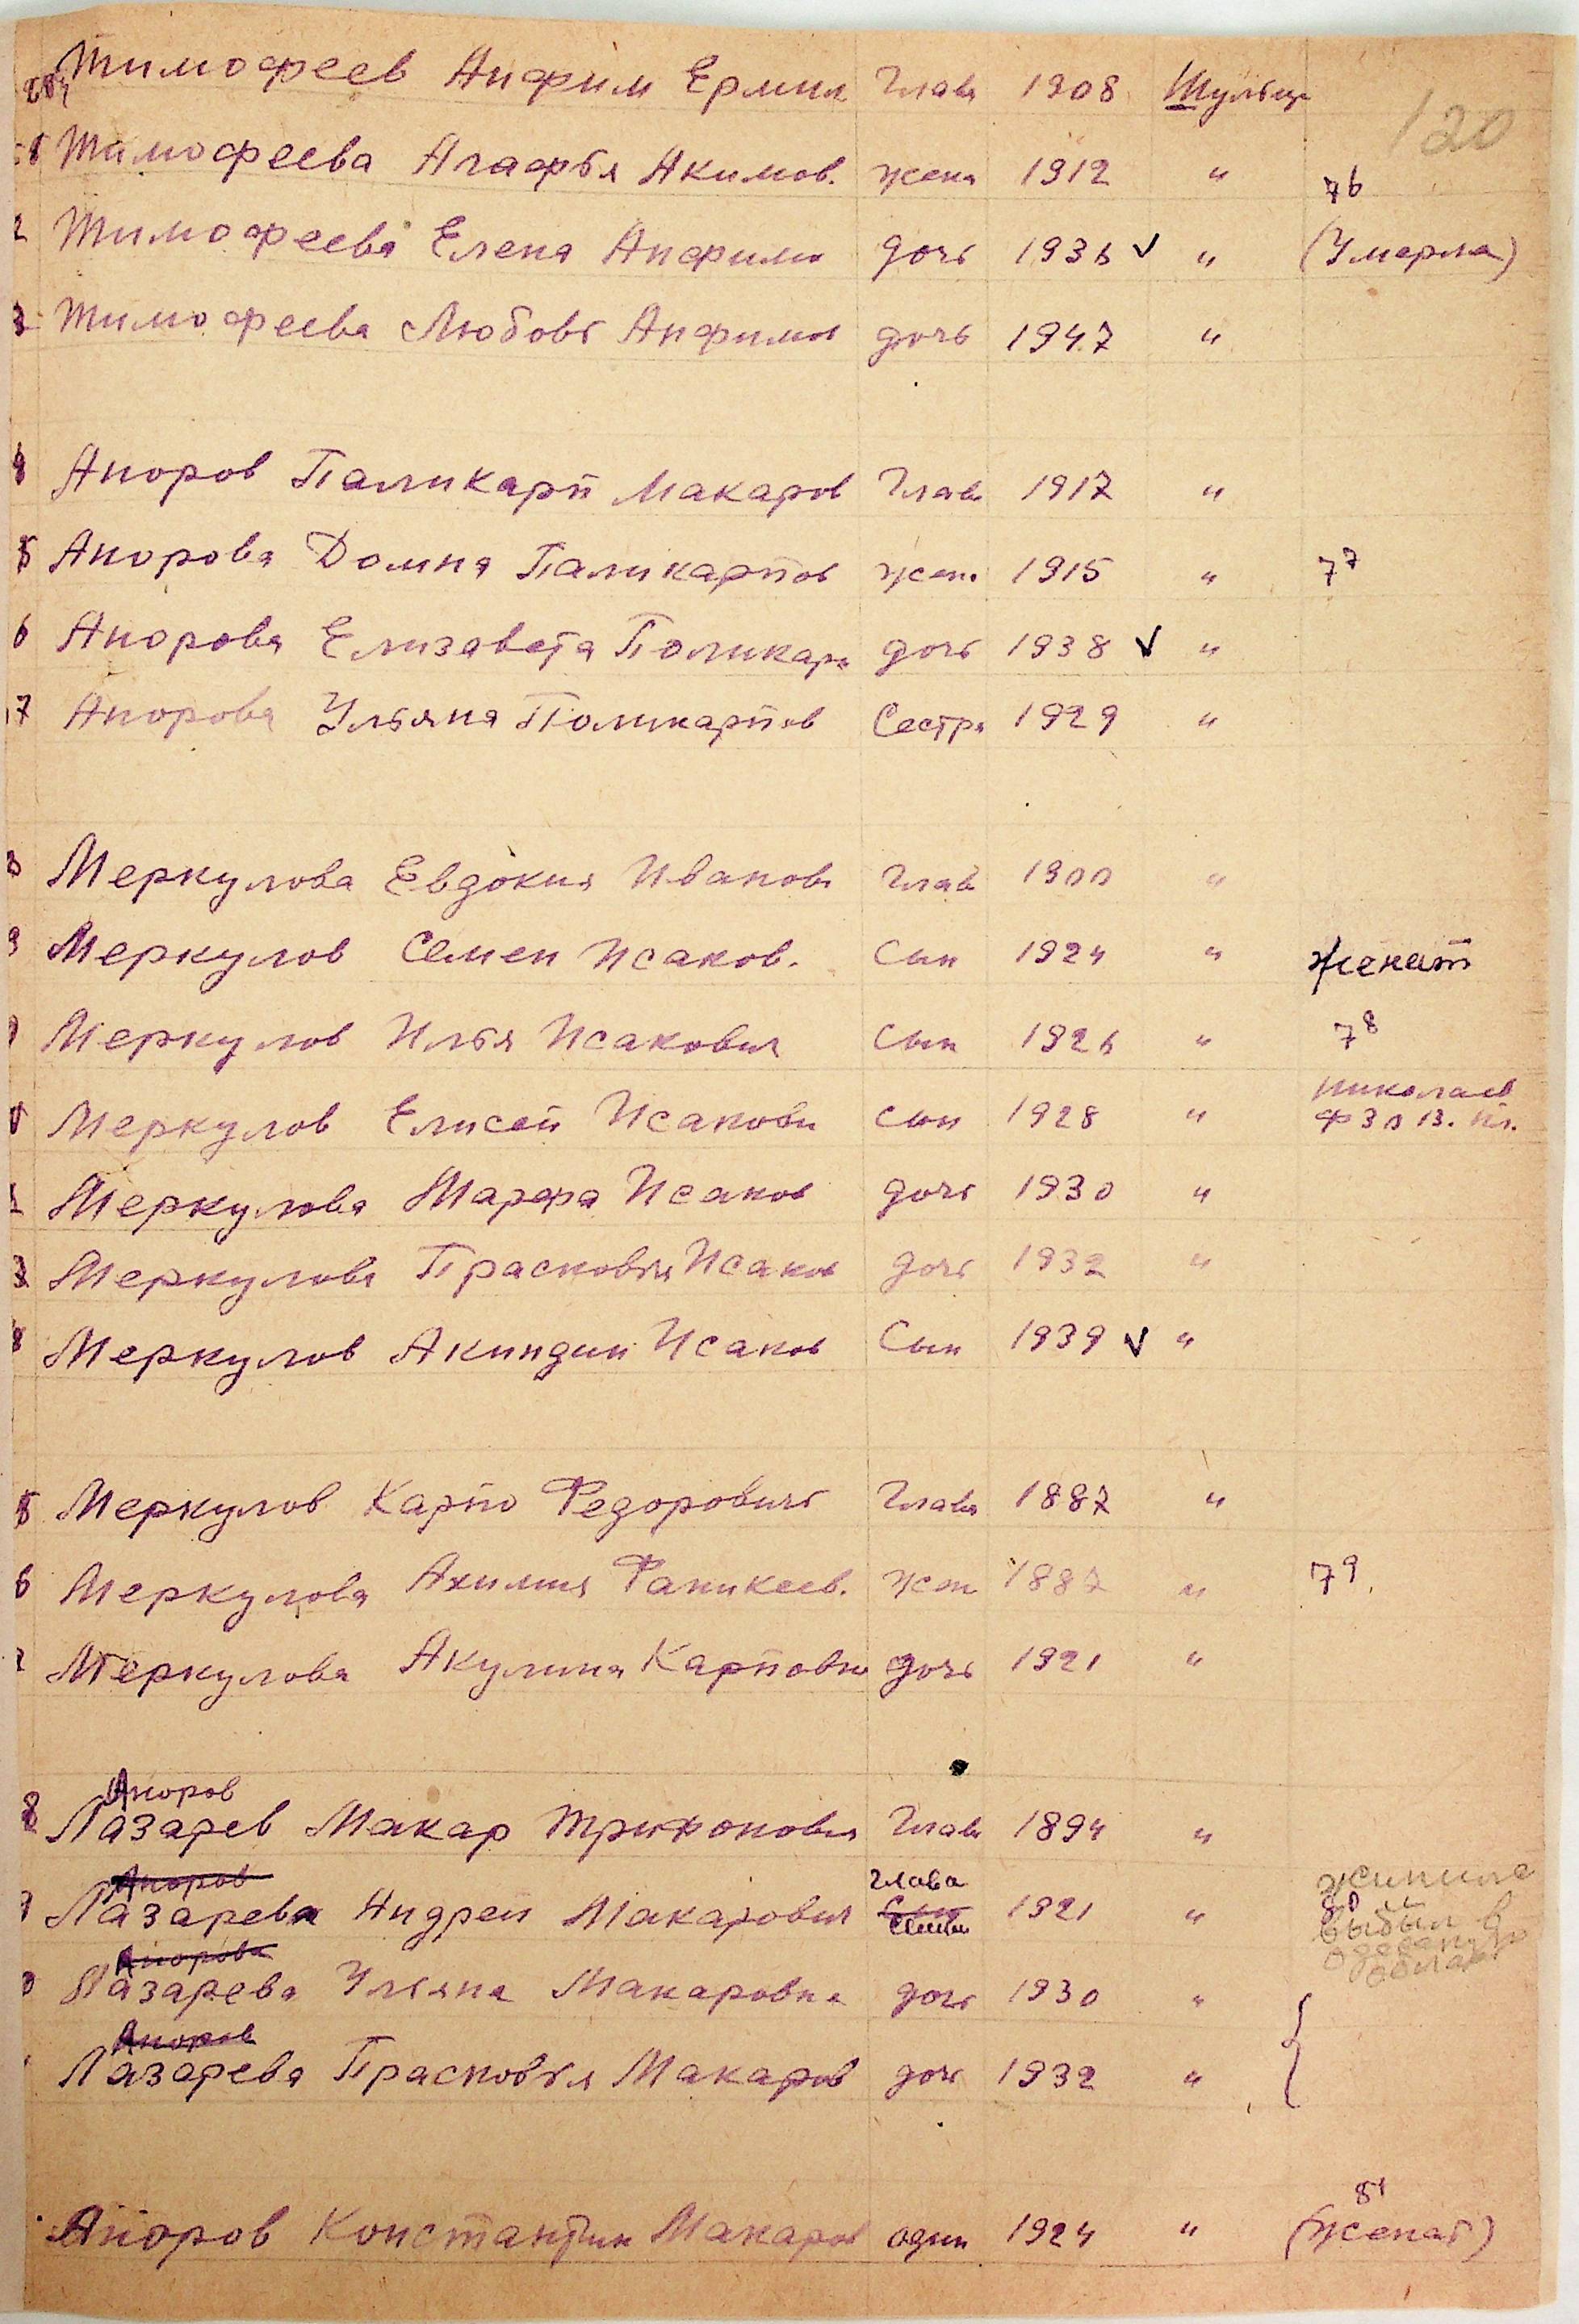 Тимофеев Анфим Ермил Глава 1908 Шульец
120
Тимофеева Агафья Акимов. жена 1912 " 76
2 Тимофеева Елена Анфимо дочь 1936 ✓ " (Умерла)
3 Тимофеева Любовь Анфимов дочь 1947 "
Апоров Паликарп Макаров Глав 1917 "
5 Апорова Домна Паликарпов жен. 1915 " 77
6 Апорова Елизавета Поликарп дочь 1938 ✓ "
17 Апорова Ульяна Поликарпов Сестра 1929 "
Меркулова Евдокия Иванов Глав 1900 "
9 Меркулов Семен Исаков. Сын 1924 " женат
Меркулов Илья Исакович сын 1926 " 78
Николаев
Меркулов Елисей Исакови сын 1928 " ФЗО
Меркулова Марфа Исаков дочь 1930 "
3 Меркулова Прасковья Исаков дочь 1932 "
Меркулов Акиндин Исаков Сын 1939 ✓ "
5 Меркулов Карпо Федорович Глава 1887 "
6 Меркулова Ахимия Фаникеев. жен 1887 " 79.
Меркулова Акулина Карповна дочь 1921 "
Апоров
8 Лазарев Макар Трифонович Глав 1894 "
Апоров Глава
Лазарева Андрей Макарович Сын 1921 " 80
семьи выбыл в
Апорова
Лазарева Ульяна Макаровна дочь 1930 "
Апоров
Лазарева Прасковья Макаров доч 1932 "
81
Апоров Константин Макаров один 1924 " (женат)